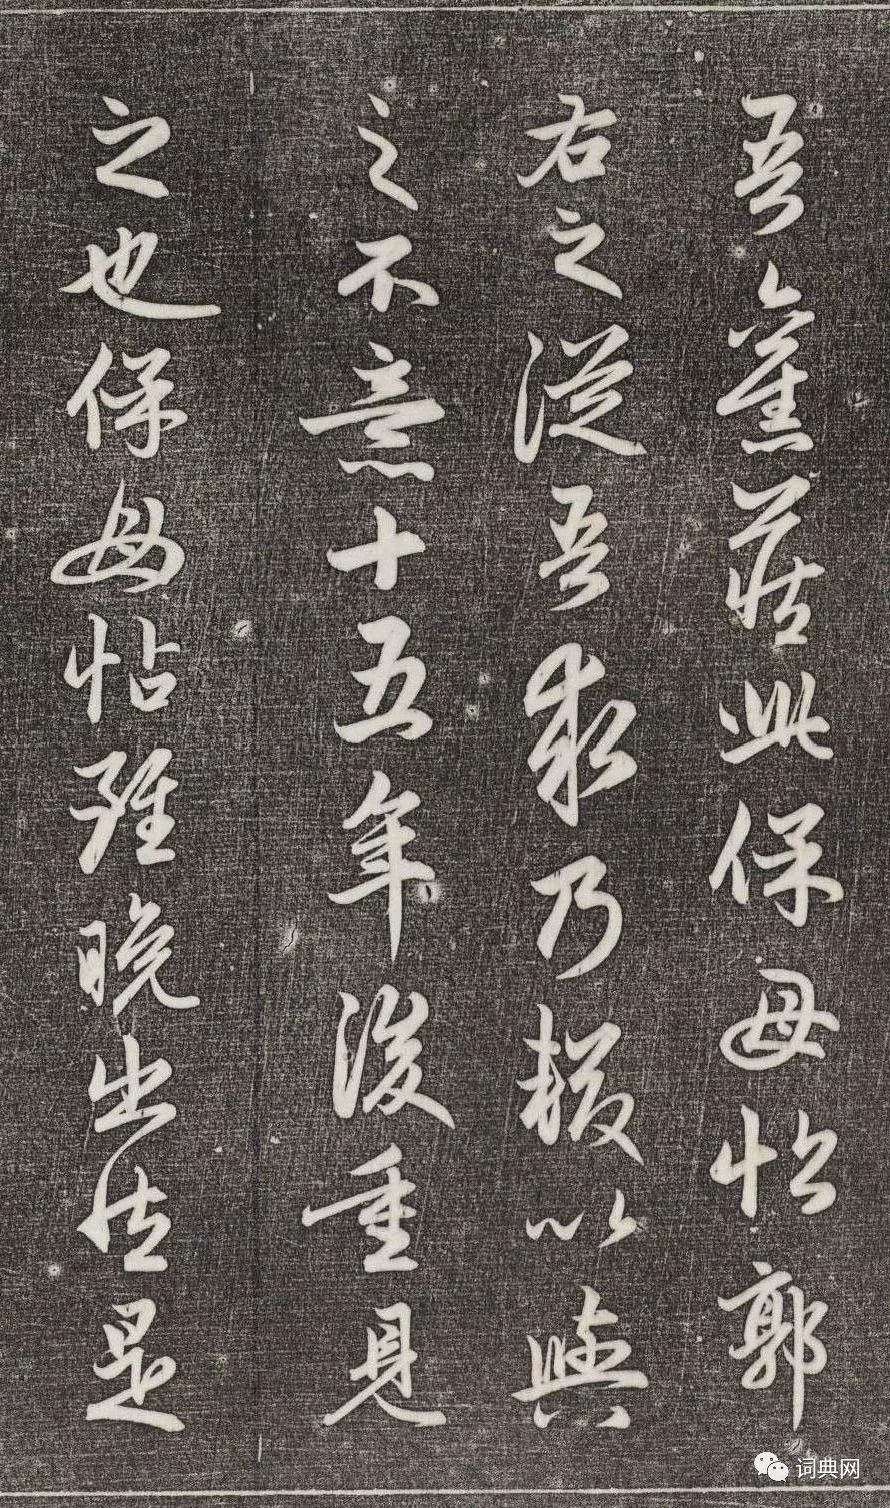 吾舊藏此保母帖郭
右之從吾求乃輟以與
之不意十五年後重見
之也保母帖雖晚出然是
词典网